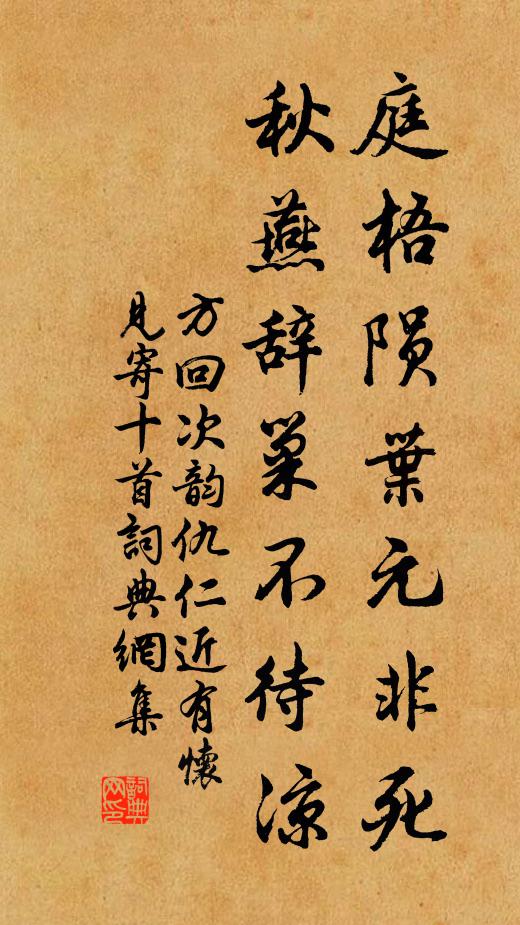 庭梧陨葉元非死
秋燕辞巢不待凉
方回次韵仇仁近有懷
見寄十首詞典網集
詞典
网印